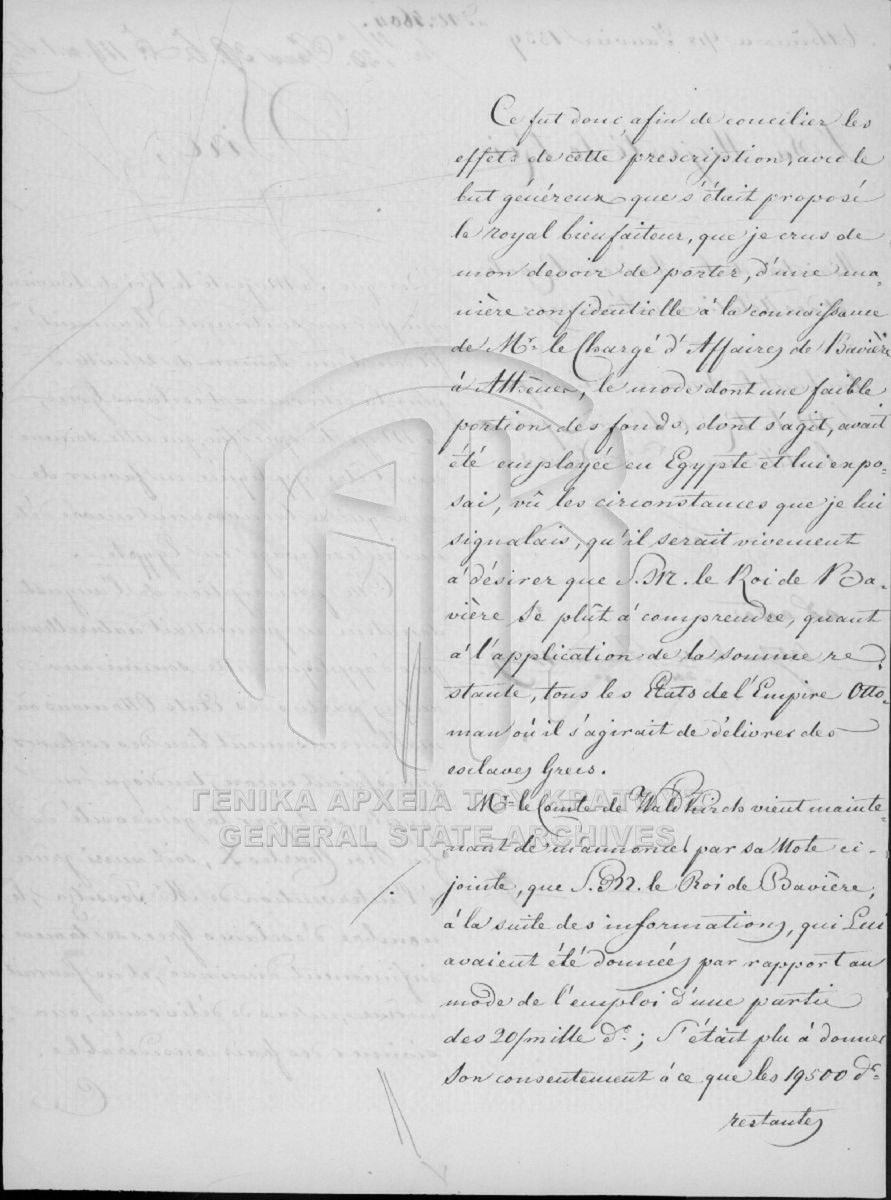 Ce fut donc, afin de concilier les
effets de cette prescription, avec le
but généreux que s'était proposé
le royal bienfaiteur, que je crus de
mon devoir de porter, d'une ma-
nière confidentielle à la connaissance
de Mr. le Chargé d'Affaires de Bavière
à Athènes, le mode dont une faible
portion des fonds, dont s'agit, avait
été employée en Egypte et lui expo-
sai, vû les circonstances que je lui
signalais, qu'il serait vivement
à désirer que S. M. le Roi de Ba-
vière se plût à comprendre, quant
à l'application de la somme re-
stante, tous les Etats de l'Empire Otto-
man où il s'agirait de délivrer des
esclaves Grecs.
ΓΕΝΙΚΑ ΑΡΧΕΙΑ ΤΟΥ ΚΡΑΤΟΥΣ
GENERAL STATE ARCHIVES
Mr. le Comte de Waldkirch vient mainte-
nant de m'annoncer par sa Note ci-
jointe, que S. M. le Roi de Bavière,
à la suite des informations, qui Lui
avaient été données par rapport au
mode de l'emploi d'une partie
des 20/mille d.; S'était plu à donner
Son consentement à ce que les 19500 d.
restantes